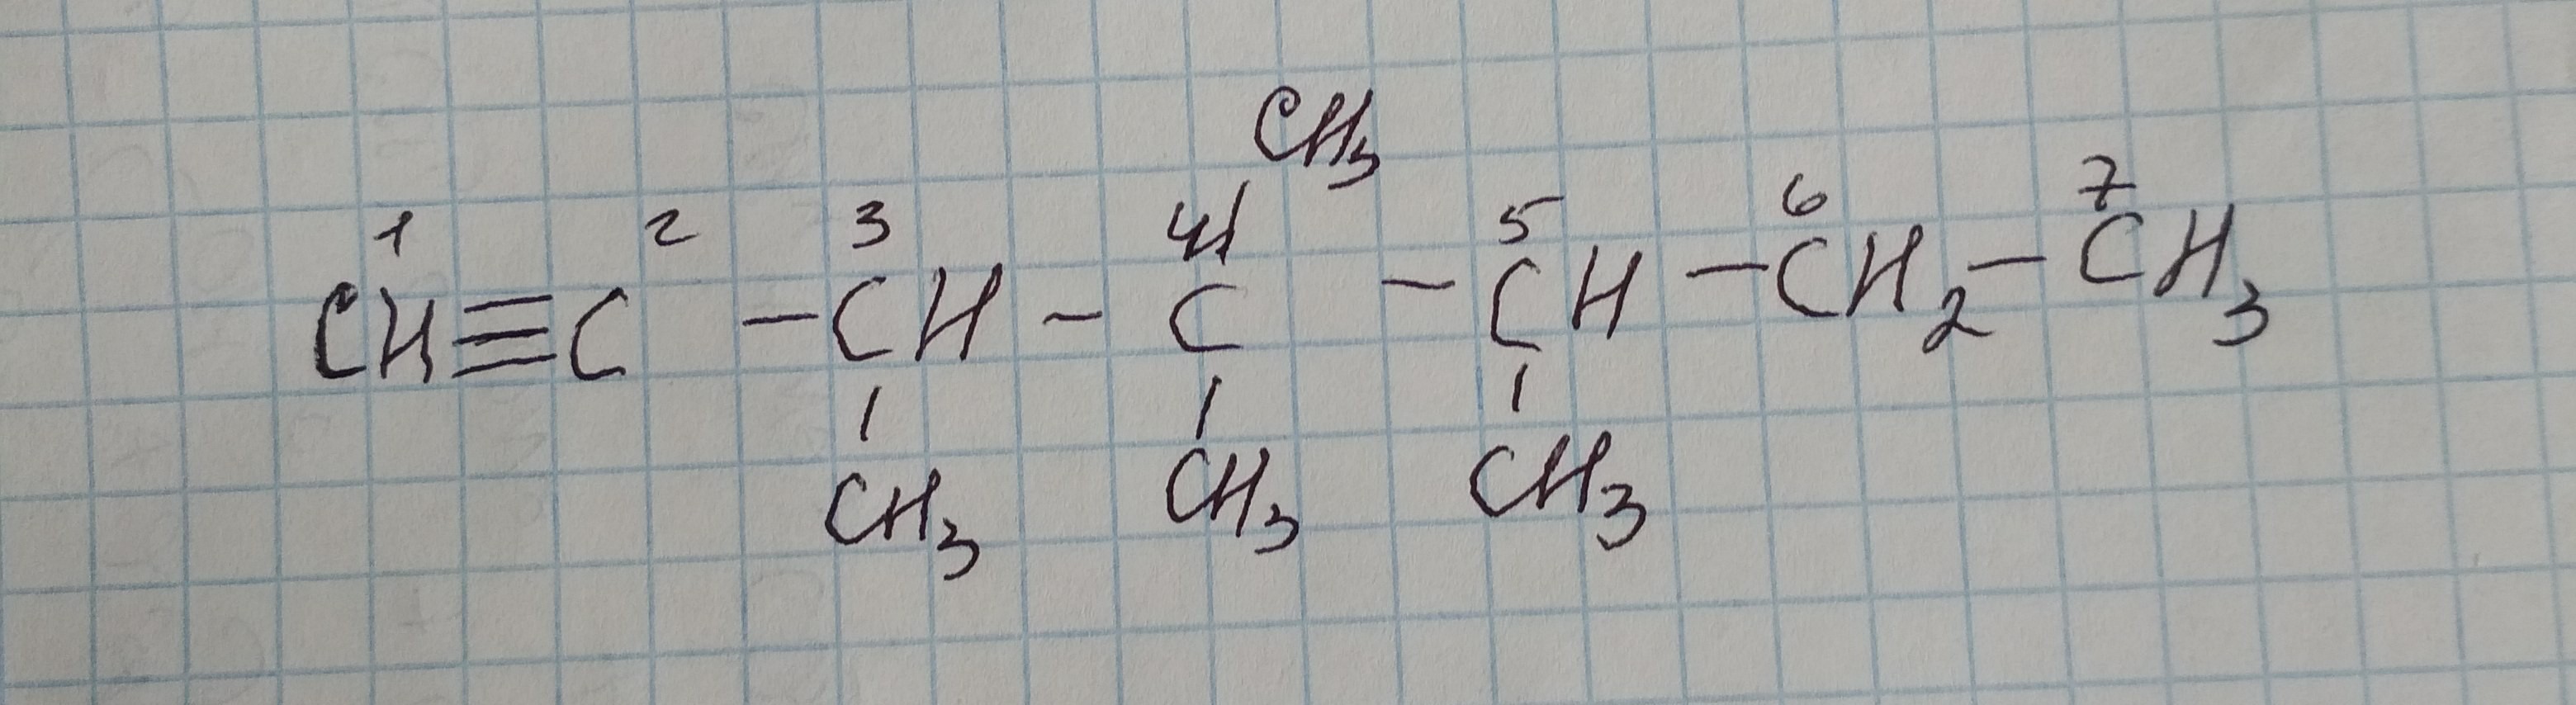 CH3
1 2 3 4 5 6 7
CH≡C – CH – C – CH – CH2 – CH3
CH3 CH3 CH3